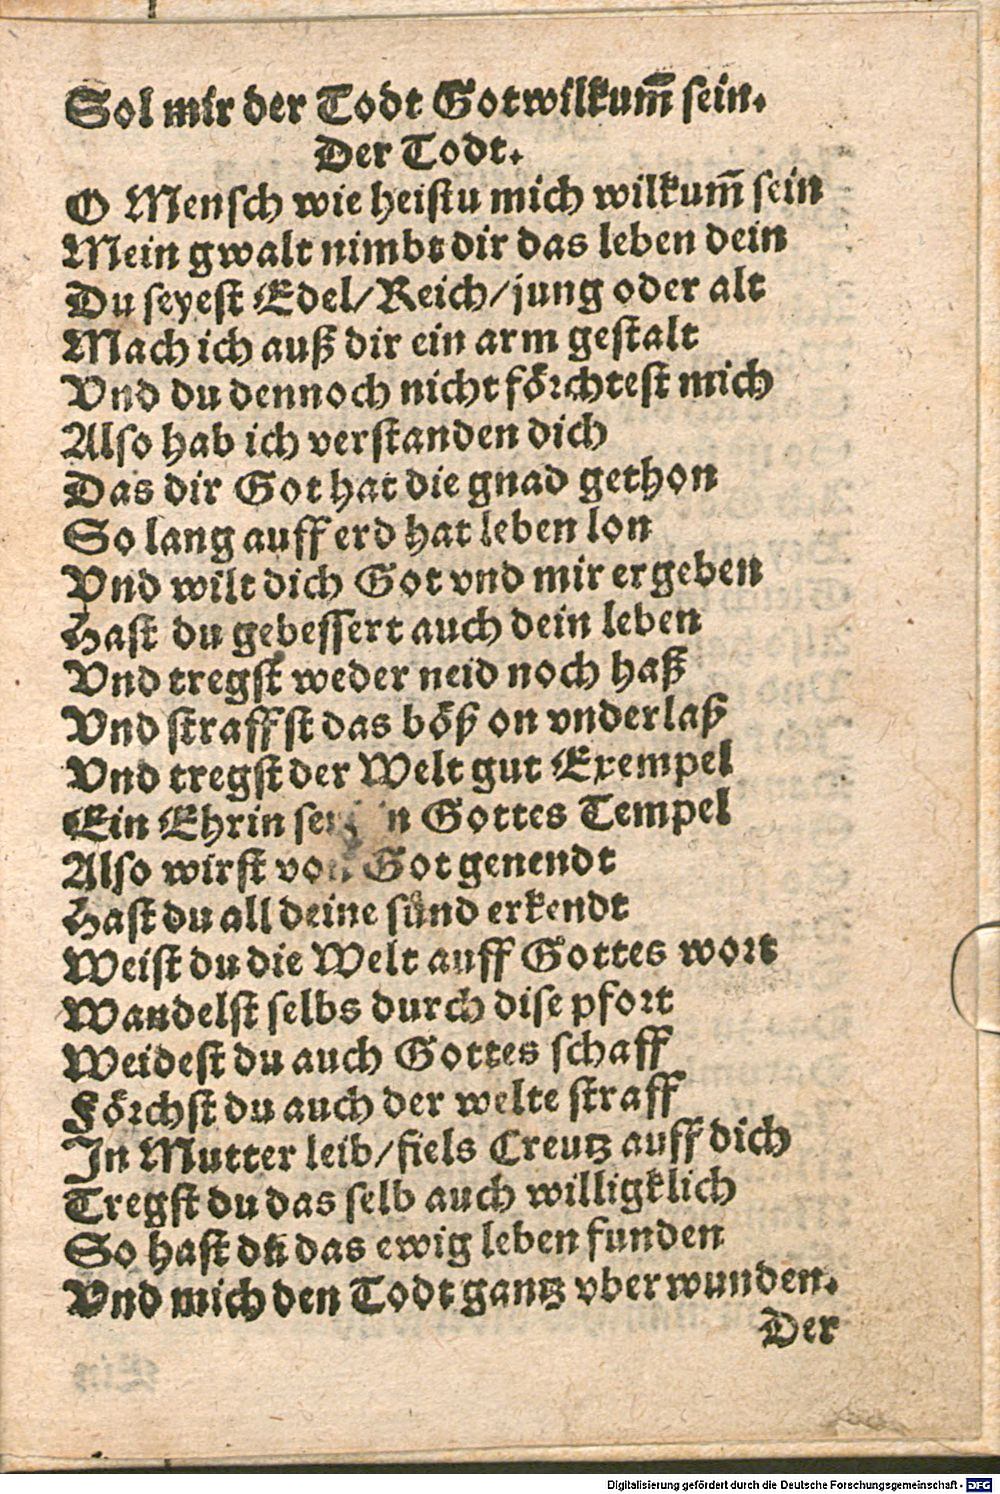 Sol mir der Todt Gotwilkum̃ sein.
Der Todt.
O Mensch wie heistu mich wilkum̃ sein
Mein gwalt nimbt dir das leben dein
Du seyest Edel/Reich/jung oder alt
Mach ich auß dir ein arm gestalt
Vnd du dennoch nicht förchtest mich
Also hab ich verstanden dich
Das dir Got hat die gnad gethon
So lang auff erd hat leben lon
Vnd wilt dich Got vnd mir ergeben
Hast du gebessert auch dein leben
Vnd tregst weder neid noch haß
Vnd straffst das böß on vnderlaß
Vnd tregst der Welt gut Exempel
Ein Ehrin Gottes Tempel
Also wirst von Got genendt
Hast du all deine sünd erkendt
Weist du die Welt auff Gottes wort
Wandelst selbs durch dise pfort
Weidest du auch Gottes schaff
Förchst du auch der welte straff
In Mutter leib/fiels Creutz auff dich
Tregst du das selb auch willigklich
So hast du das ewig leben funden
Vnd mich den Todt gantz vberwunden.
Der
Digitalisierung gefördert durch die Deutsche Forschungsgemeinschaft - DFG